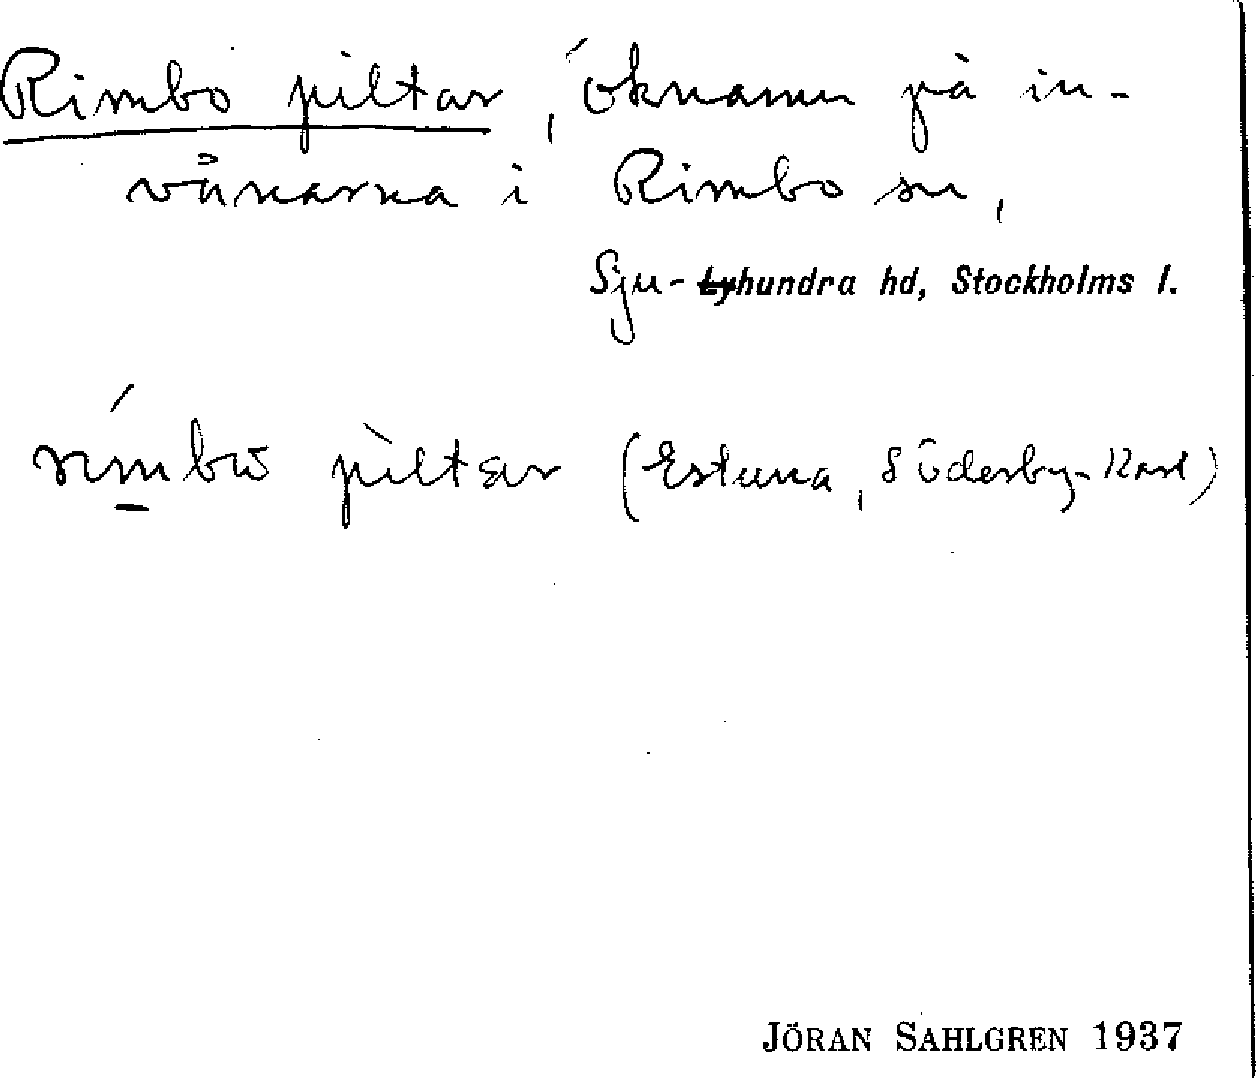 Rimbo piltar, öknamn på in-
vånarna i Rimbo sn,
Sju- Lyhundra hd, Stockholms l.
rímbω pìltar (Estuna, Söderby-Karl)
JÖRAN SAHLGREN 1937